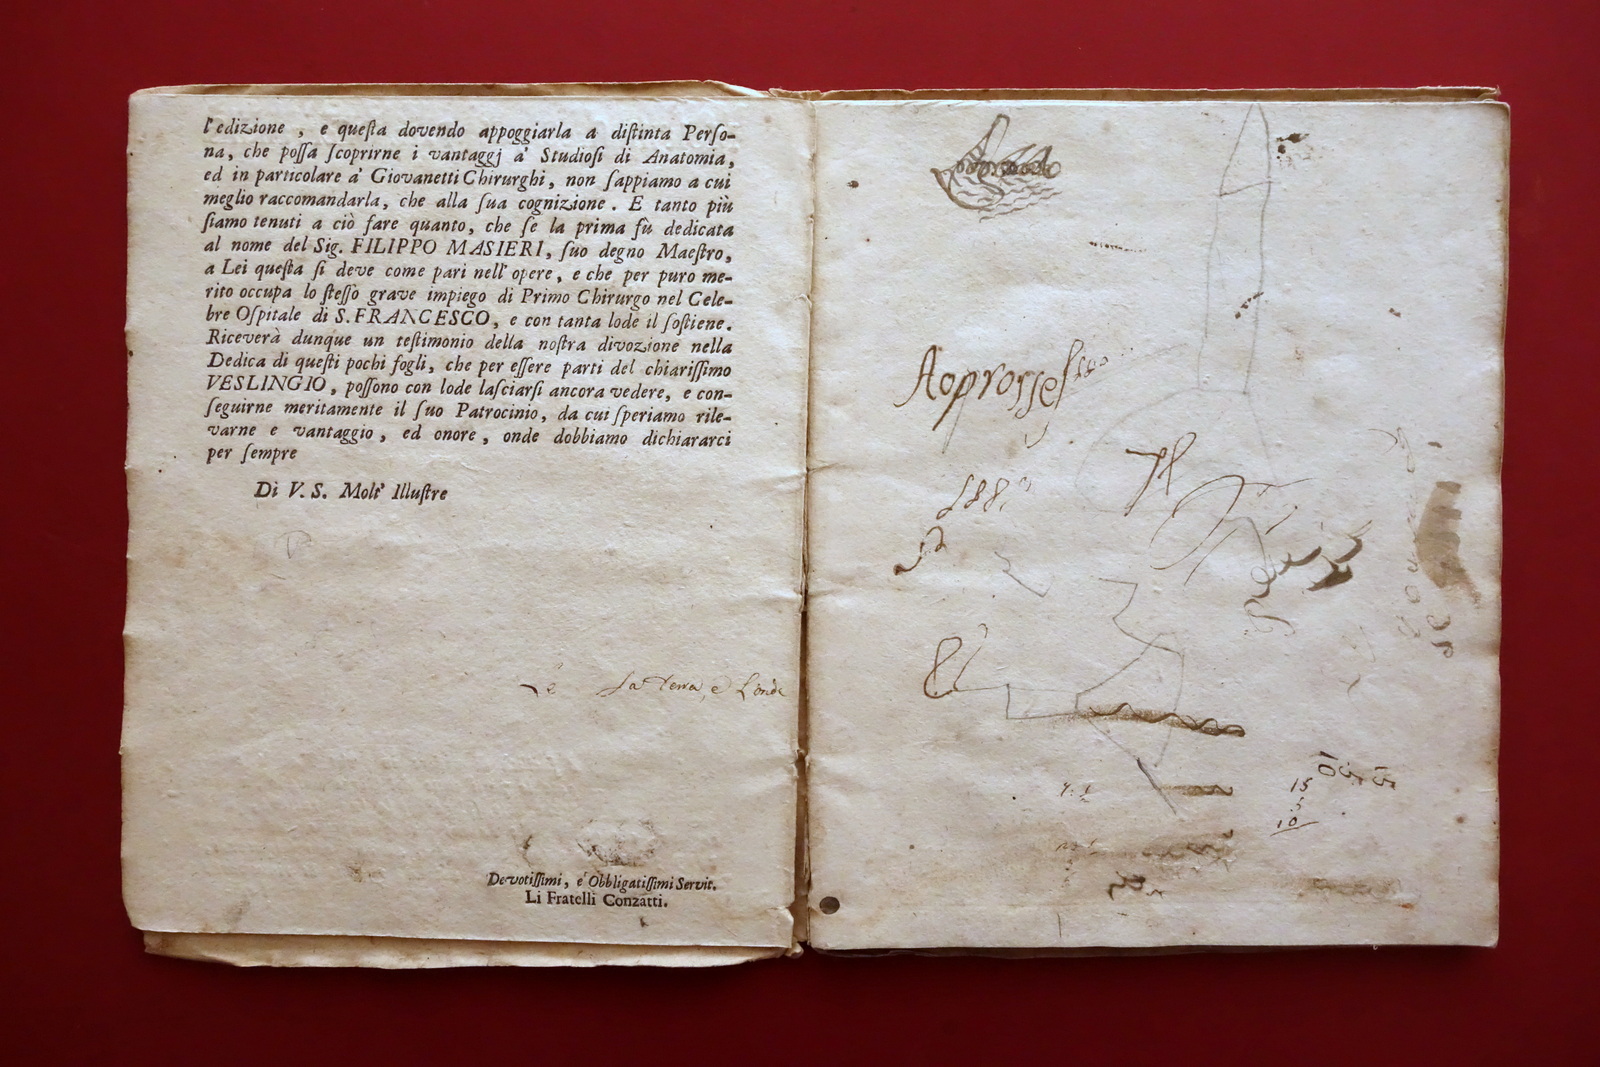 l'edizione, e questa dovendo appoggiarla a distinta Perso-
na, che possa scoprirne i vantaggj a' Studiosi di Anatomia,
ed in particolare a' Giovanetti Chirurghi, non sappiamo a cui
meglio raccomandarla, che alla sua cognizione. E tanto più
siamo tenuti a ciò fare quanto, che se la prima fù dedicata
al nome del Sig. FILIPPO MASIERI, suo degno Maestro,
a Lei questa si deve come pari nell' opere, e che per puro me-
rito occupa lo stesso grave impiego di Primo Chirurgo nel Cele-
bre Ospitale di S. FRANCESCO, e con tanta lode il sostiene.
Riceverà dunque un testimonio della nostra divozione nella
Dedica di questi pochi fogli, che per essere parti del chiarissimo
VESLINGIO, possono con lode lasciarsi ancora vedere, e con-
seguirne meritamente il suo Patrocinio, da cui speriamo rile-
varne e vantaggio, ed onore, onde dobbiamo dichiararci
per sempre
Di V. S. Molt' Illustre
Le La Terra, e L'onde
Devotissimi, e Obbligatissimi Servit.
Li Fratelli Conzatti.
15
5
10